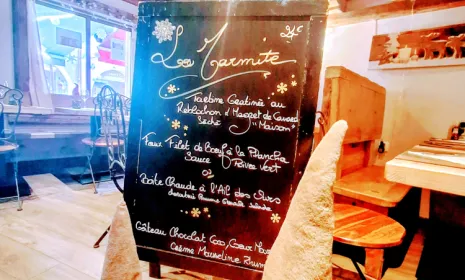 24€
La Marmite
Tartine Gratinée au
Reblochon & Magret de Canard
Séché "Maison"
Faux Filet de Bœuf à la Plancha
Sauce Poivre Vert
OU
Boîte Chaude à l'Ail des Ours
Gâteau Chocolat Coco, Cœur
Crème Mousseline